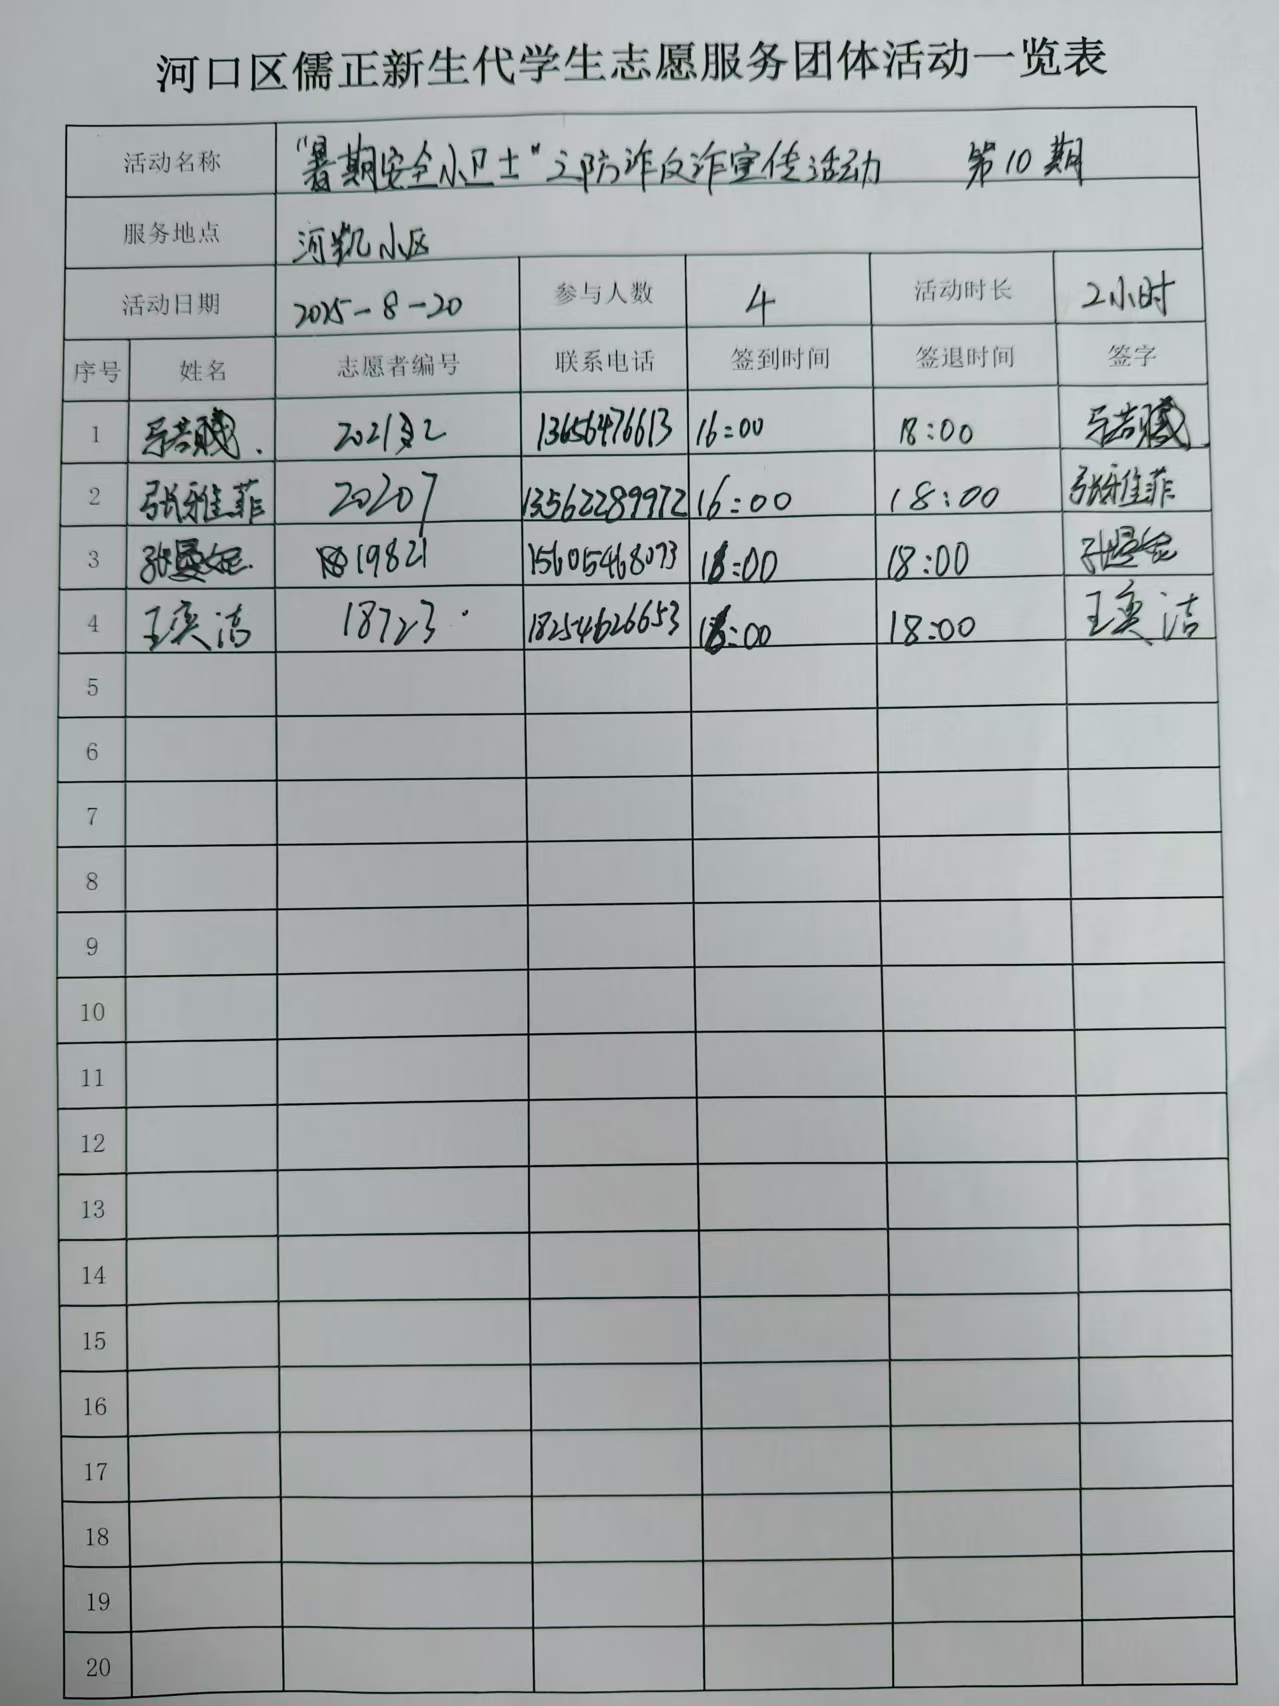 河口区儒正新生代学生志愿服务团体活动一览表
活动名称 "暑期安全小卫士"之防诈反诈宣传活动 第10期
服务地点 河凯小区
活动日期 2025-8-20 参与人数 4 活动时长 2小时
序号 姓名 志愿者编号 联系电话 签到时间 签退时间 签字
1 13656476613 16:00 18:00
2 张雅菲 20207 13562289972 16:00 18:00 张雅菲
3 19821 15605468073 16:00 18:00
4 王奕洁 18723 18254626653 16:00 18:00 王奕洁
5
6
7
8
9
10
11
12
13
14
15
16
17
18
19
20